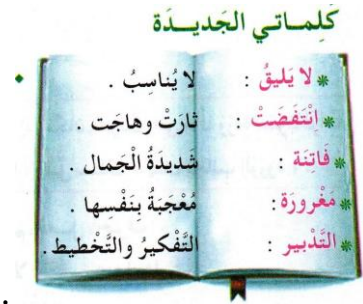 كَلِمـاتي الجَديــدَة
* لا يَليقُ : لا يُناسِبُ .
* اِنْتَفَضَتْ : ثارَتْ وهاجَت .
* فَاتِنَة : شَديدَةُ الْجَمال .
* مَغْرورَة : مُعْجَبَةُ بِنَفْسِها .
* التَّدْبير : التَّفْكيرُ والتَّخْطيط .